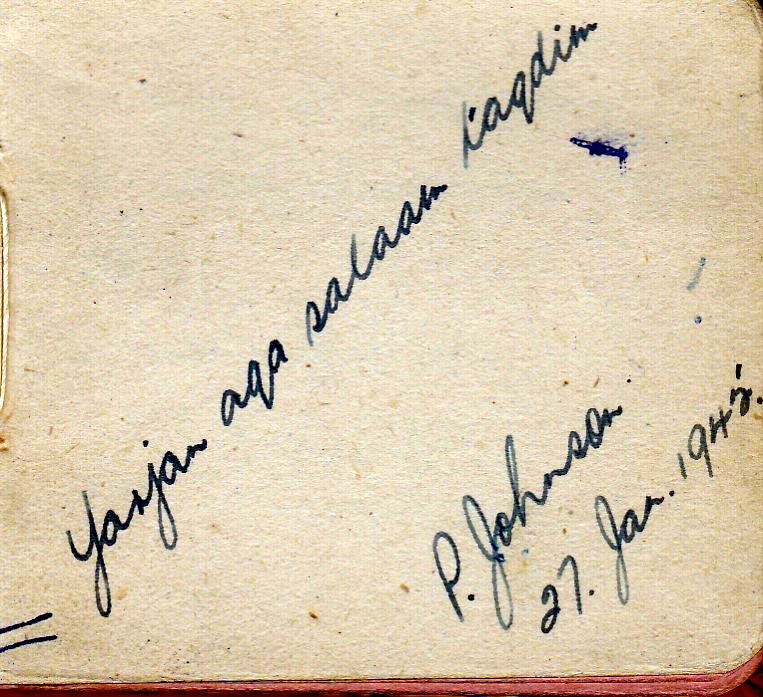 Yarjan aga salaam taqdim
P. Johnson.
27. Jan. 1943.